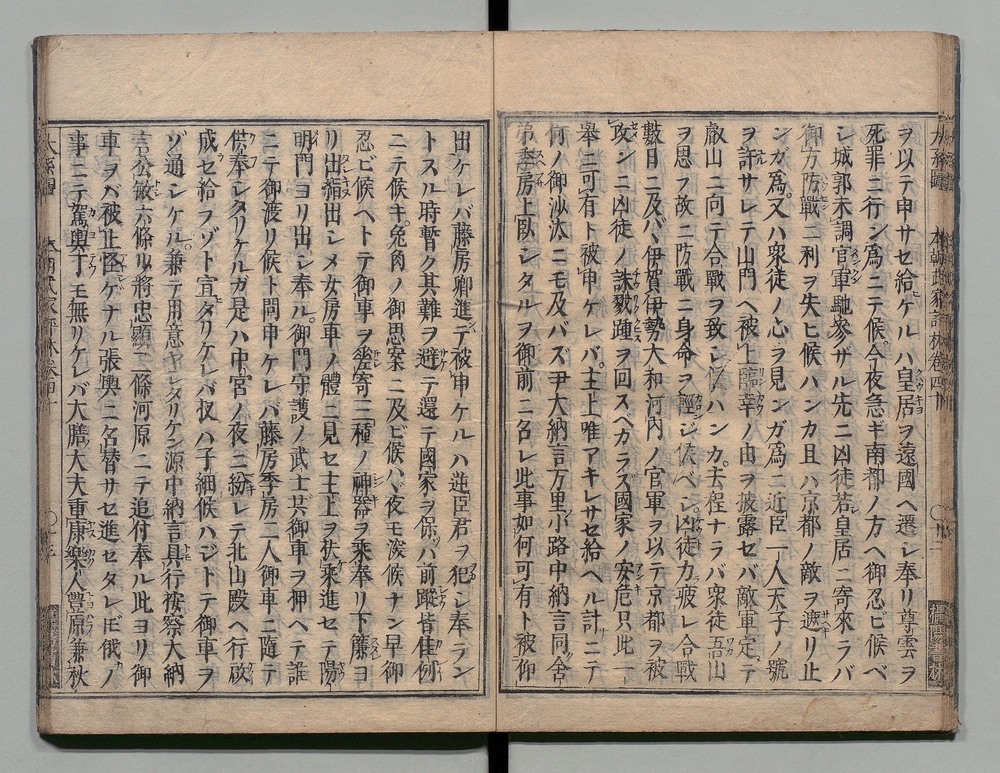 ヲ以テ申サセ給ケルハ皇居ヲ遠國ヘ遷シ奉リ尊雲ヲ
死罪ニ行ン爲ニテ候。今夜急ギ南都ノ方ヘ御忍ビ候ベ
シ城郭未調官軍馳參ザル先ニ凶徒若皇居ニ寄來ラバ
御方防戰ニ利ヲ失ヒ候ハンカ且ハ京都ノ敵ヲ遮リ止
ンガ爲。又ハ衆徒ノ心ヲ見ンガ爲ニ近臣一人天子ノ號
ヲ許サレテ山門ヘ被上臨幸ノ由ヲ披露セバ敵軍定テ
叡山ニ向テ合戰ヲ致シ候ハンカ。去程ナラバ衆徒吾山
ヲ思フ故ニ防戰ニ身命ヲ輕ジ候ベシ。凶徒力疲レ合戰
數日ニ及バヾ伊賀伊勢大和河内ノ官軍ヲ以テ京都ヲ被
攻ンニ凶徒ノ誅戮踵ヲ回スヘカラズ國家ノ安危只此一
舉ニ可有ト被申ケレバ。主上唯アキレサセ給ヘル計ニテ
何ノ御沙汰ニモ及バズ尹大納言万里小路中納言同舍
弟季房上臥シタルヲ御前ニ召レ此事如何可有ト被仰
出ケレバ藤房卿進デ被申ケルハ逆臣君ヲ犯シ奉ラン
トスル時暫ク其難ヲ避テ還テ國家ヲ保ハ前蹤皆佳例
ニテ候キ。免角ノ御思案ニ及ビ候ハヾ夜モ深候ナン早御
忍ビ候ヘトテ御車ヲ差寄三種ノ神器ヲ乘奉リ下簾ヨ
リ出絹出シメ女房車ノ體ニ見セ主上ヲ扶乘進セテ陽
明門ヨリ出シ奉ル。御門守護ノ武士共御車ヲ押ヘテ誰
ニテ御渡リ候ト問申ケレバ藤房季房二人御車ニ隨テ
供奉シタリケルガ是ハ中宮ノ夜ニ紛レテ北山殿ヘ行啟
成セ給フゾト宣タリケレバ扠ハ子細候ハジトテ御車ヲ
ゾ通シケル。兼テ用意ヤシタリケン源中納言具行按察大納
言公敏六條少將忠顯三條河原ニテ追付奉ル此ヨリ御
車ヲバ被止怪ゲナル張輿ニ召替サセ進セタレ𪜈俄ノ
事ニテ駕輿丁モ無リケレバ大膳大夫重康樂人豐原兼秋